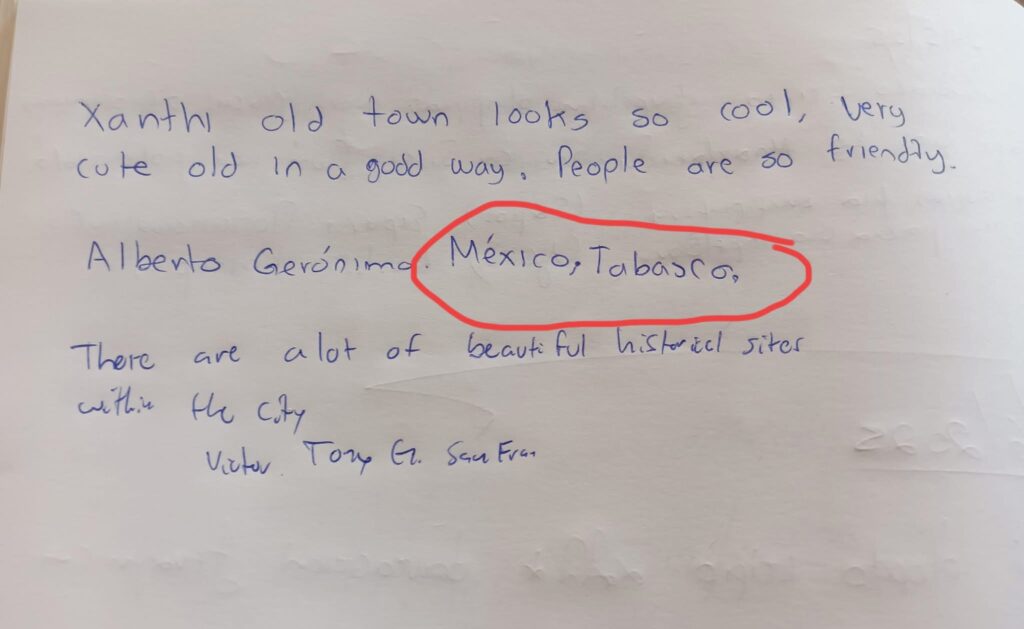 Xanthi old town looks so cool, very
cute old in a good way. People are so friendly.
Alberto Gerónimo. México, Tabasco,
There are a lot of beautiful historicl sites
within the city
Victor. Tony G. San Fran